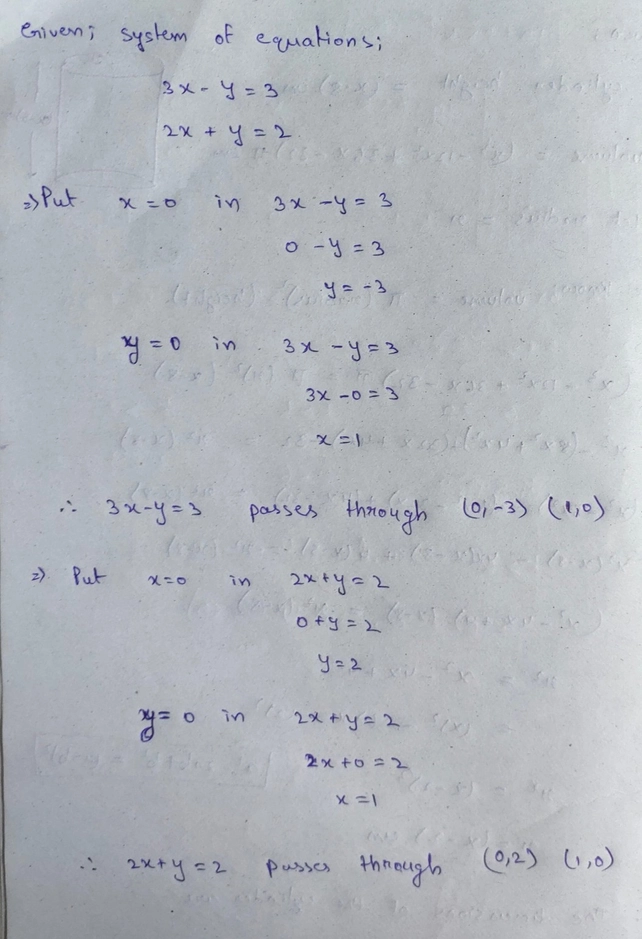 Given; system of equations;
3x - y = 3
2x + y = 2
=> Put x = 0 in 3x - y = 3
0 - y = 3
y = -3
y = 0 in 3x - y = 3
3x - 0 = 3
x = 1
∴ 3x - y = 3 passes through (0,-3) (1,0)
=> Put x=0 in 2x+y = 2
0+y = 2
y = 2
y = 0 in 2x + y = 2
2x + 0 = 2
x = 1
∴ 2x + y = 2 passes through (0,2) (1,0)